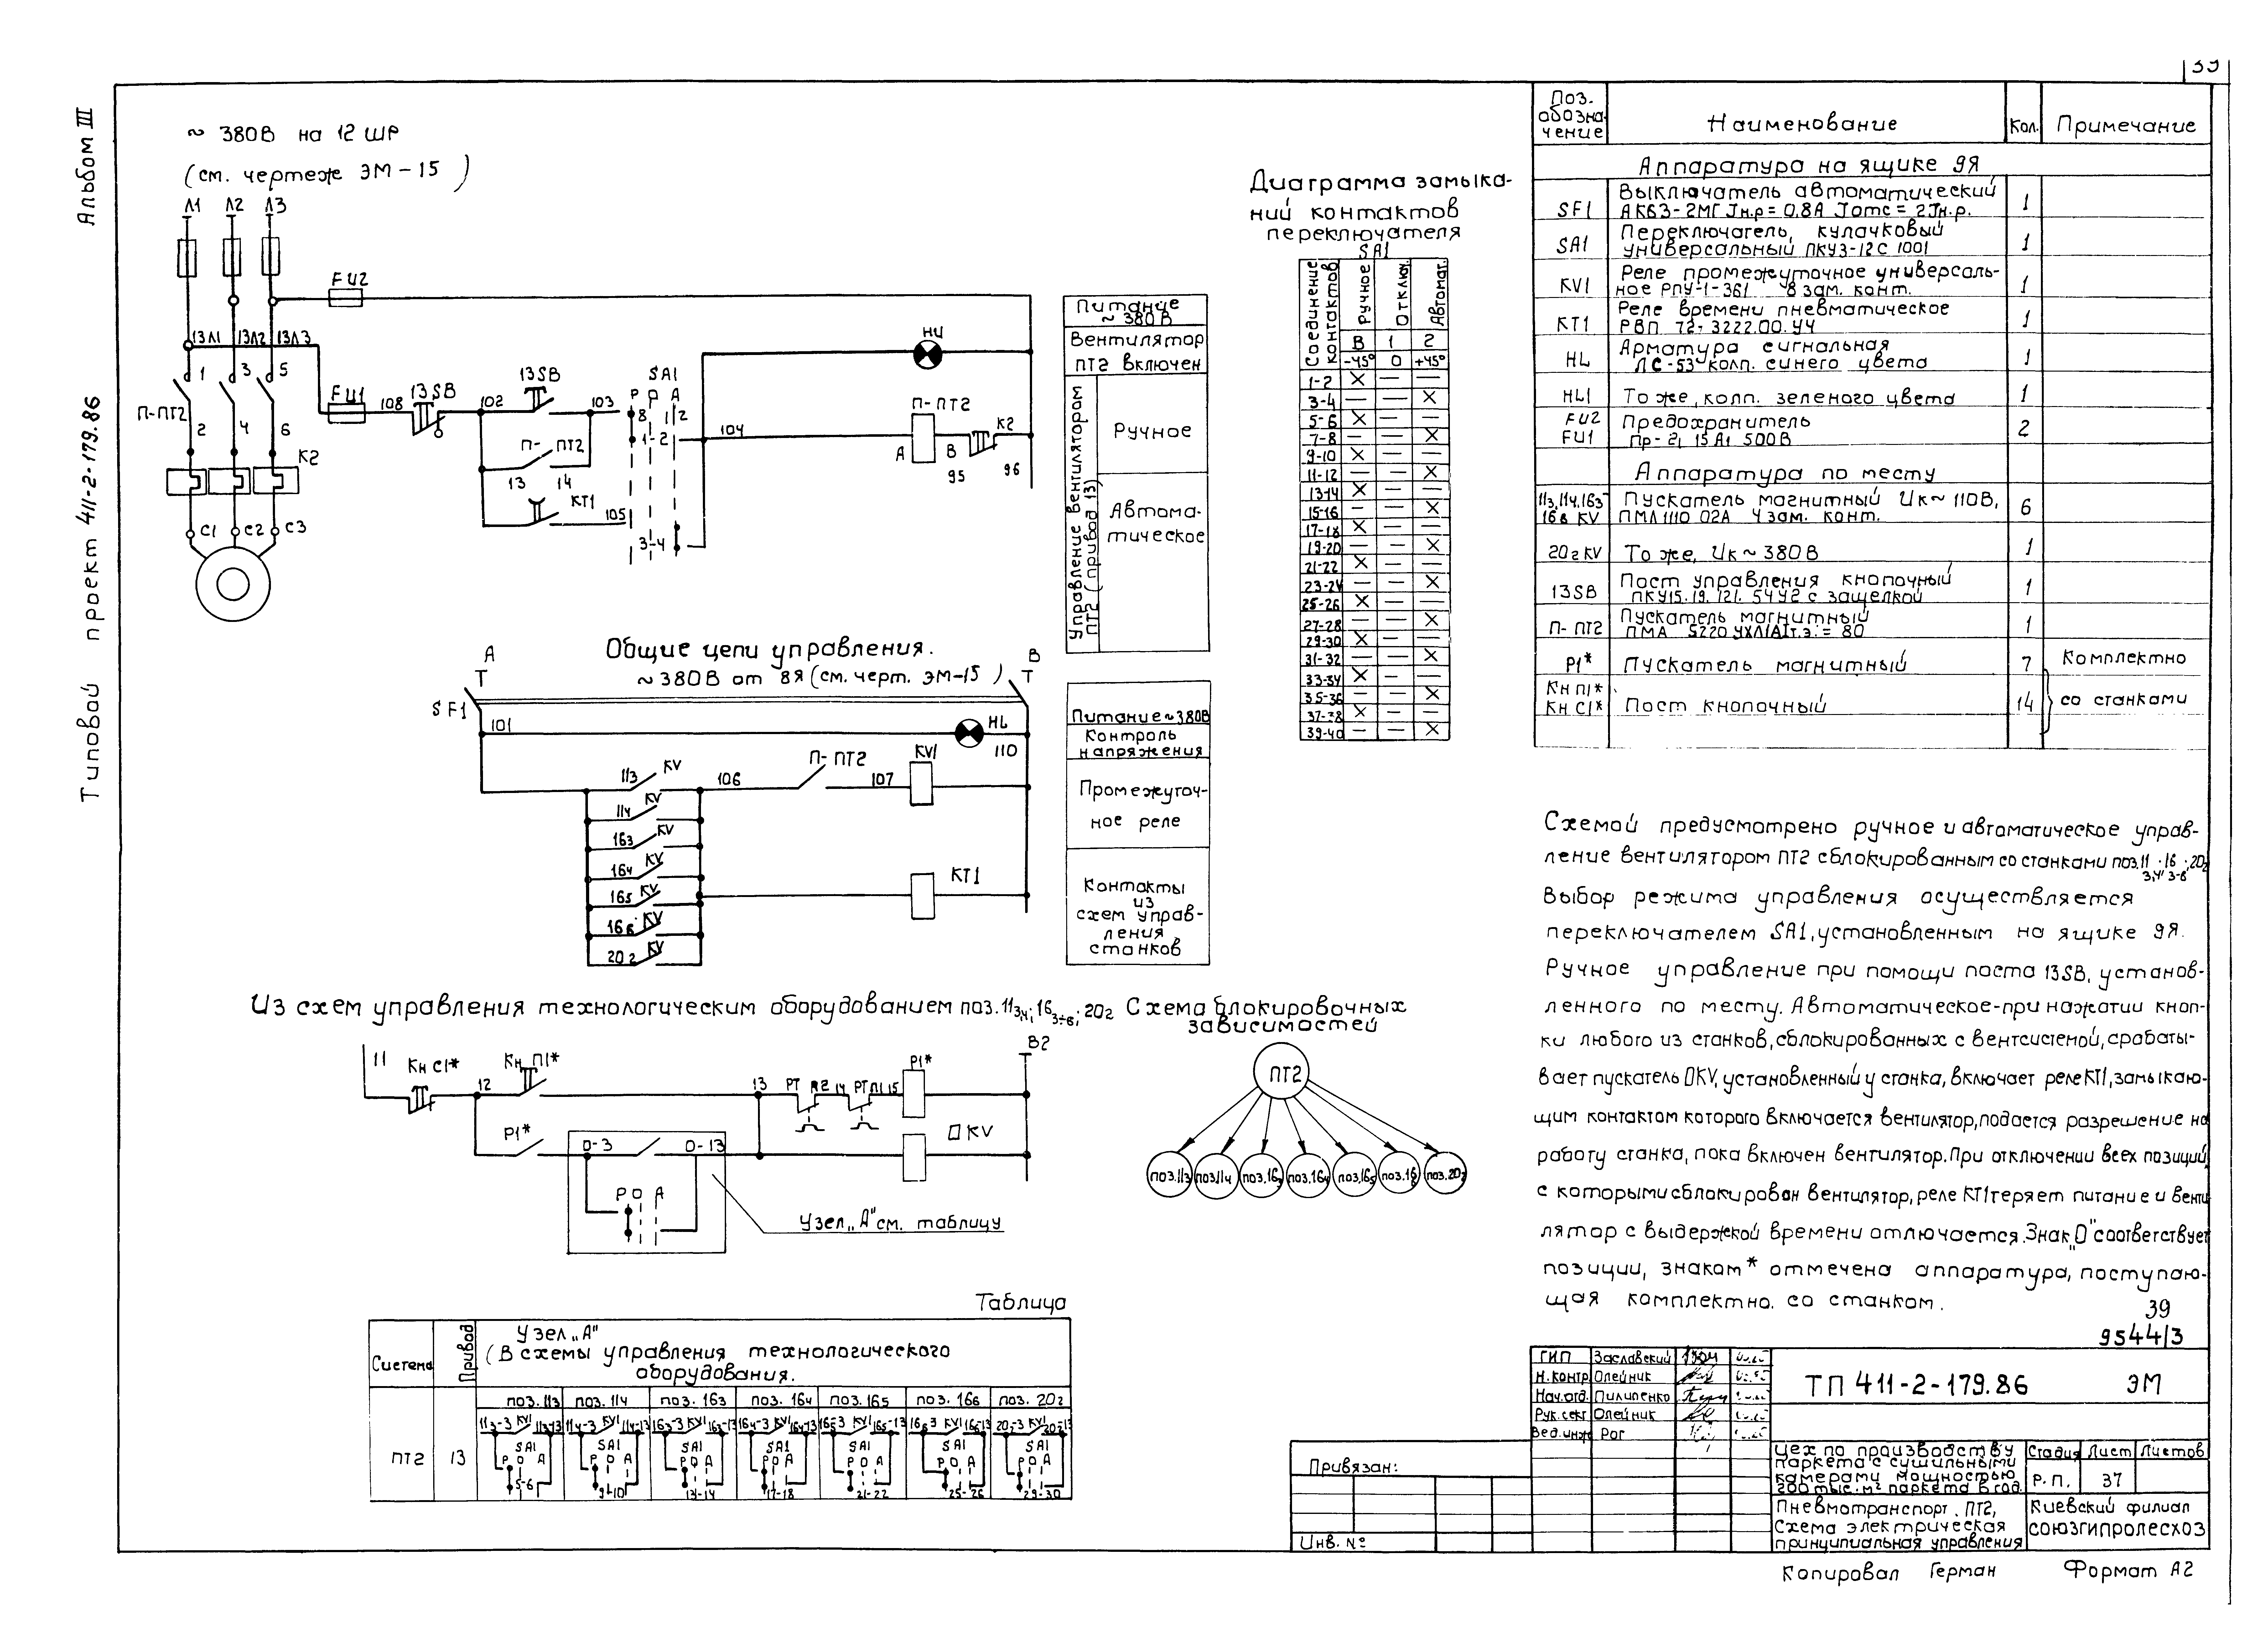 Альбом III
Типовой проект 411-2-179.86
~ 380В на 12 ШР
(см. чертеж ЭМ-15)
Л1 Л2 Л3
FU2
13Л1 13Л2 13Л3
1 3 5
П-ПТ2
2 4 6
К2
С1 С2 С3
FU1 108 13SB 102 13SB 103
SA1
Р О А
8 1 2
1-2
104
HL1
П-ПТ2
К2
А В
95 96
П-ПТ2
13 14
КТ1 105
3-4
Питание
~ 380В
Вентилятор
ПТ2 включен
Управление вентилятором
ПТ2 (привод 13)
Ручное
Автома-
тическое
Общие цепи управления.
~380В от 8Я (см. черт. ЭМ-15)
А В
SF1
101
HL
110
11з KV
106
П-ПТ2
107
KV1
11ч KV
16з KV
16ч KV
16₅ KV
16в KV
20г KV
КТ1
Питание~380В
Контроль
напряжения
Промежуточ-
ное реле
Контакты
из
схем управ-
ления
станков
Диаграмма замыка-
ний контактов
переключателя
SA1
Соединение контактов
Ручное
Отключ.
Автомат.
В 1 2
-45° 0 +45°
1-2 × — —
3-4 — — ×
5-6 × — —
7-8 — — ×
9-10 × — —
11-12 — — ×
13-14 × — —
15-16 — — ×
17-18 × — —
19-20 — — ×
21-22 × — —
23-24 — — ×
25-26 × — —
27-28 — — ×
29-30 × — —
31-32 — — ×
33-34 × — —
35-36 — — ×
37-38 × — —
39-40 — — ×
Из схем управления технологическим оборудованием поз. 11з,ч; 16з÷в; 20г
11 Кн С1* 12 Кн П1* 13 РТ П2 14 РТ П1 15 Р1*
В2
Р1*
О-3 О-13
П KV
Р О А
Узел „А" см. таблицу
Схема блокировочных
зависимостей
ПТ2
поз.11з поз.11ч поз.16з поз.16ч поз.16₅ поз.16в поз.20г
Таблица
Система
Привод
Узел „А"
(В схемы управления технологического
оборудования.
поз. 11з поз. 11ч поз. 16з поз. 16ч поз. 16₅ поз. 16в поз. 20г
ПТ2 13
11з-3 KV1 11з-13
11ч-3 KV1 11ч-13
16з-3 KV1 16з-13
16ч-3 KV1 16ч-13
16₅-3 KV1 16₅-13
16в-3 KV1 16в-13
20г-3 KV1 20г-13
SA1 SA1 SA1 SA1 SA1 SA1 SA1
Р О А Р О А Р О А Р О А Р О А Р О А Р О А
5-6 9-10 13-14 17-18 21-22 25-26 29-30
Поз. обозна-чение Наименование Кол. Примечание
Аппаратура на ящике 9Я
SF1 Выключатель автоматический
АК63-2МГ Jн.р = 0.8А Jотс = 2Jн.р. 1
SA1 Переключатель кулачковый
универсальный ПКУ3-12С 1001 1
KV1 Реле промежуточное универсаль-
ное РПУ-1-361 8 зам. конт. 1
КТ1 Реле времени пневматическое
РВП 72-3222.00.У4 1
HL Арматура сигнальная
ЛС-53 колп. синего цвета 1
HL1 То же, колп. зеленого цвета 1
FU2
FU1 Предохранитель
Пр-2, 15А, 500В 2
Аппаратура по месту
11з, 11ч, 16з-
16в KV Пускатель магнитный Uк~ 110В,
ПМЛ 1110 02А 4 зам. конт. 6
20г KV То же, Uк ~ 380В 1
13SB Пост управления кнопочный
ПКУ15.19.121.54У2 с защелкой 1
П-ПТ2 Пускатель магнитный 1
Р1* Пускатель магнитный 7 Комплектно
Кн П1*
Кн С1* Пост кнопочный 14 со станками
Схемой предусмотрено ручное и автоматическое управ-
ление вентилятором ПТ2 сблокированным со станками поз. 11з,ч; 16з-в; 20г
Выбор режима управления осуществляется
переключателем SA1, установленным на ящике 9Я.
Ручное управление при помощи поста 13SB, установ-
ленного по месту. Автоматическое-при нажатии кноп-
ки любого из станков, сблокированных с вентсистемой, срабаты-
вает пускатель ПKV, установленный у станка, включает реле КТ1, замыкаю-
щим контактом которого включается вентилятор, подается разрешение на
работу станка, пока включен вентилятор. При отключении всех позиций,
с которыми сблокирован вентилятор, реле КТ1 теряет питание и венти
лятор с выдержкой времени отключается. Знак „П" соответствует
позиции, знаком * отмечена аппаратура, поступаю-
щая комплектно со станком.
39
9544/3
ГИП Заславский
Н.контр Олейник
Нач.отд. Пилипенко
Рук.сект Олейник
Вед.инж Рог
ТП 411-2-179.86 ЭМ
Цех по производству
паркета с сушильными
камерами мощностью
200 тыс. м² паркета в год.
Стадия Лист Листов
Р.П. 37
Пневмотранспорт. ПТ2,
Схема электрическая
принципиальная управления
Киевский филиал
СОЮЗГИПРОЛЕСХОЗ
Привязан:
Инв. №
Копировал Герман Формат А2